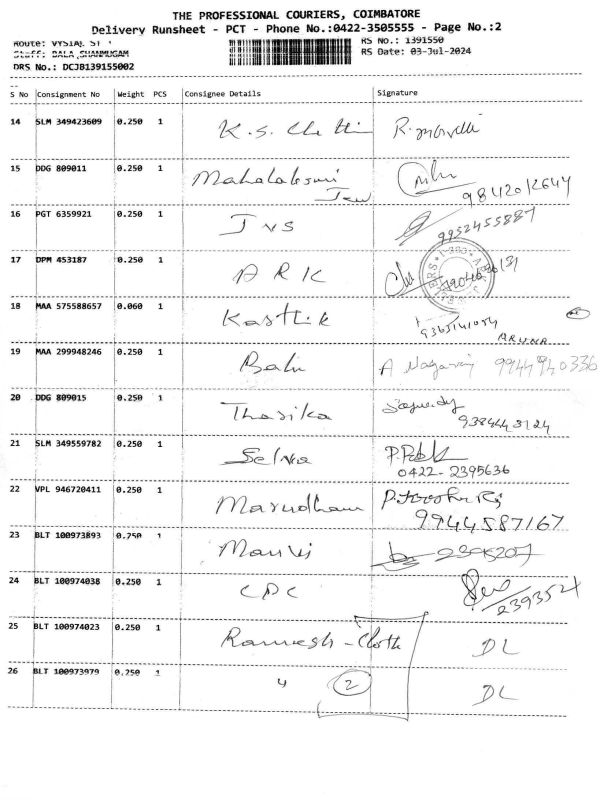 THE PROFESSIONAL COURIERS, COIMBATORE
Delivery Runsheet - PCT - Phone No.:0422-3505555 - Page No.:2
Route: VYSIAL ST 1
RS No.: 1391550
Staff: BALA SHANMUGAM
RS Date: 03-Jul-2024
DRS No.: DCJB139155002
S No Consignment No Weight PCS Consignee Details Signature
14 SLM 349423609 0.250 1 K.S. Chetti
15 DDG 809011 0.250 1 Mahalakshmi
9842012644
16 PGT 6359921 0.250 1 JVS
9952455887
17 DPM 453187 0.250 1 ARK
18 MAA 575588657 0.060 1 Karthik
ARUNA
19 MAA 299948246 0.250 1 Balu A Nagaraj 9944940336
20 DDG 809015 0.250 1 Tharika
9384443124
21 SLM 349559782 0.250 1 Selva
0422-2395636
22 VPL 946720411 0.250 1 Marudham
9944587167
23 BLT 100973893 0.250 1 2395207
24 BLT 100974038 0.250 1 CDC
25 BLT 100974023 0.250 1 Ramesh - Cloth DL
26 BLT 100973979 0.250 1 " 2 DL